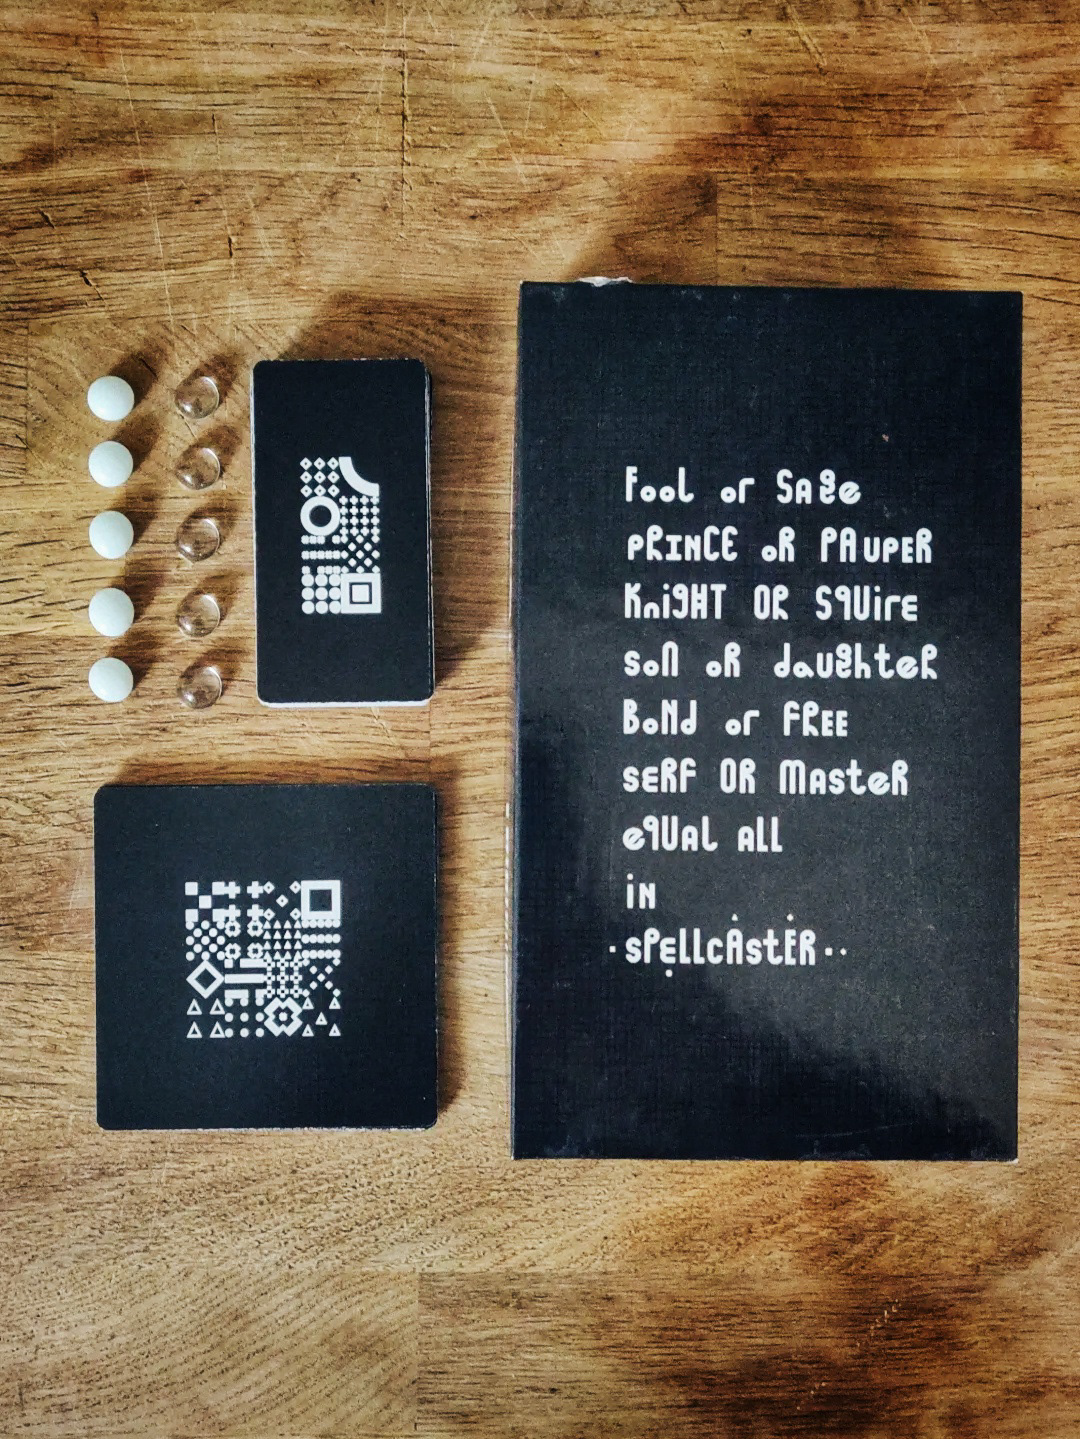 Fool or SAge
PRINCE oR PAUPER
KnigHT OR SqUirE
soN oR daughteR
BoNd or FREE
sERF OR MasteR
eqUAL ALL
iN
·sPELLcAstER··